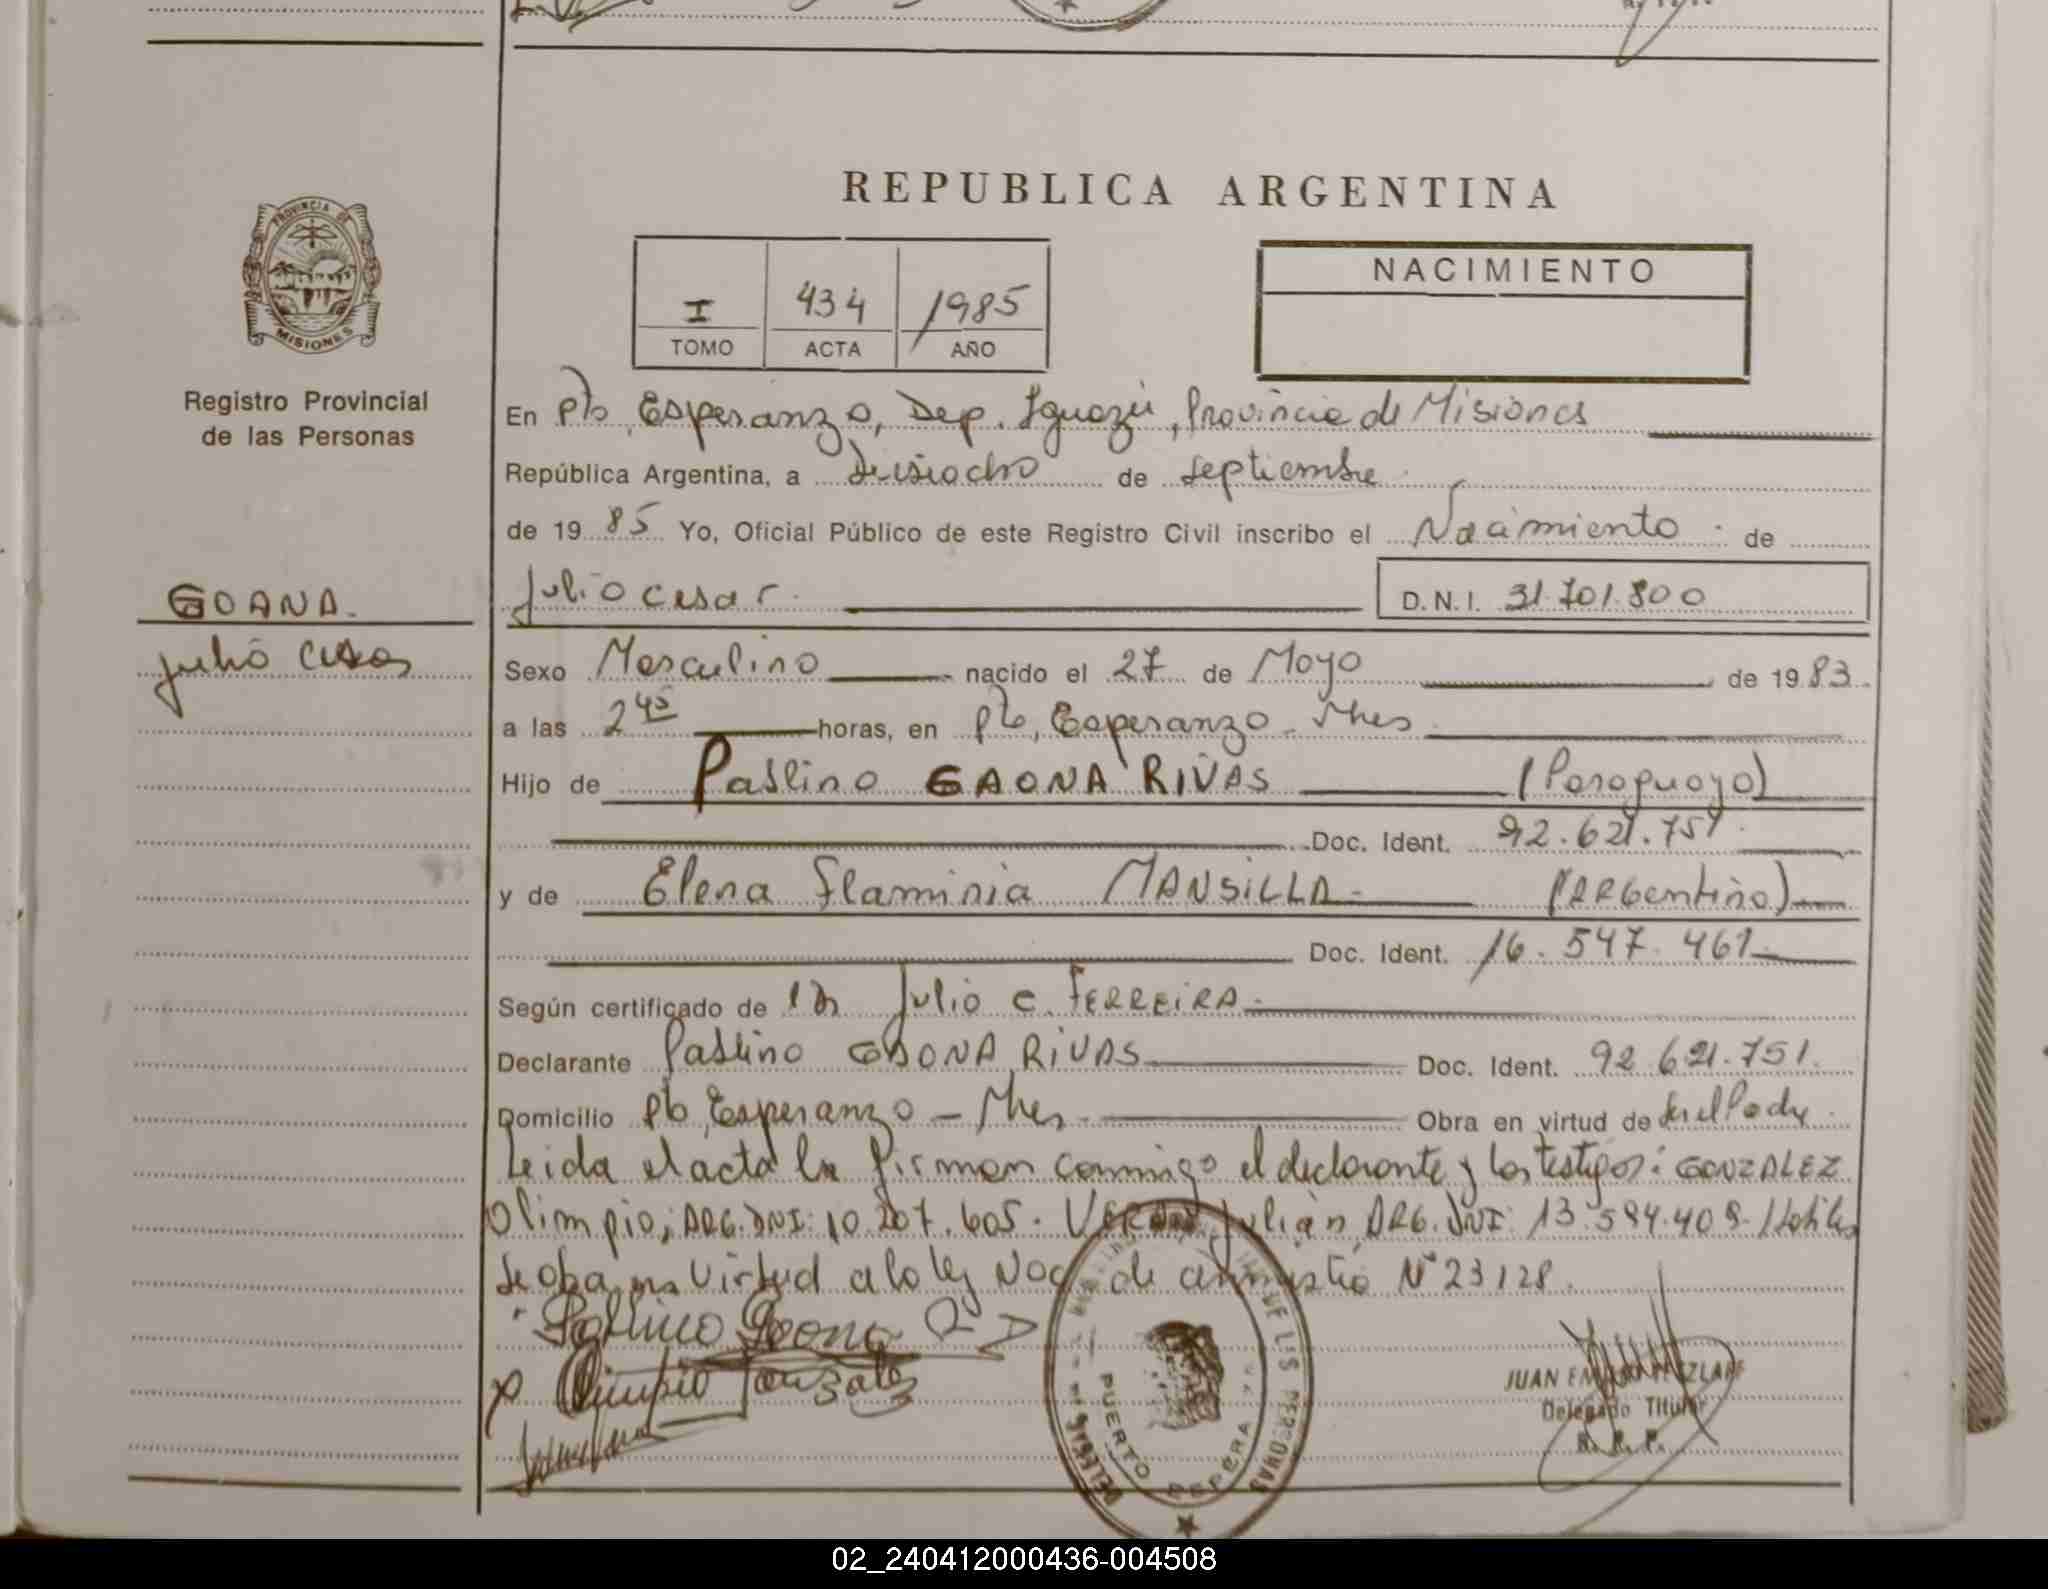 REPUBLICA ARGENTINA
PROVINCIA DE
MISIONES
Registro Provincial
de las Personas
I 434 1985
TOMO ACTA AÑO
NACIMIENTO
En Pto, Esperanza, Dep. Iguazú, Provincia de Misiones
República Argentina, a Disiocho de septiembre
de 19 85 Yo, Oficial Público de este Registro Civil inscribo el Nacimiento de
GOANA.
Julio Cesar
Julio Cesar. D.N.I. 31.701.800
Sexo Masculino nacido el 27 de Mayo de 19 83
a las 2 45 horas, en Pto, Esperanza - Mnes
Hijo de Paslino GAONA RIVAS (Paraguayo)
Doc. Ident. 92.621.751
y de Elena Flaminia MANSILLA - (ARGentina)
Doc. Ident. 16.547.461
Según certificado de Julio C. FERREIRA -
Declarante Paslino GAONA RIVAS Doc. Ident. 92.621.751.
Domicilio Pto, Esperanza - Mnes Obra en virtud de ser el Padre.
Leida el acta la firman conmigo el declarante y los testigos: GONZALEZ
Olimpio, ARG. DNI: 10.207.605. Julián, ARG. DNI: 13.594.409.
se obra en virtud a la ley de amnistia Nº 23128.
Gaona
Olimpio Gonzalez
DE LAS PERSONAS
PUERTO
JUAN
Delegado Titular
R. P. P.
02_240412000436-004508